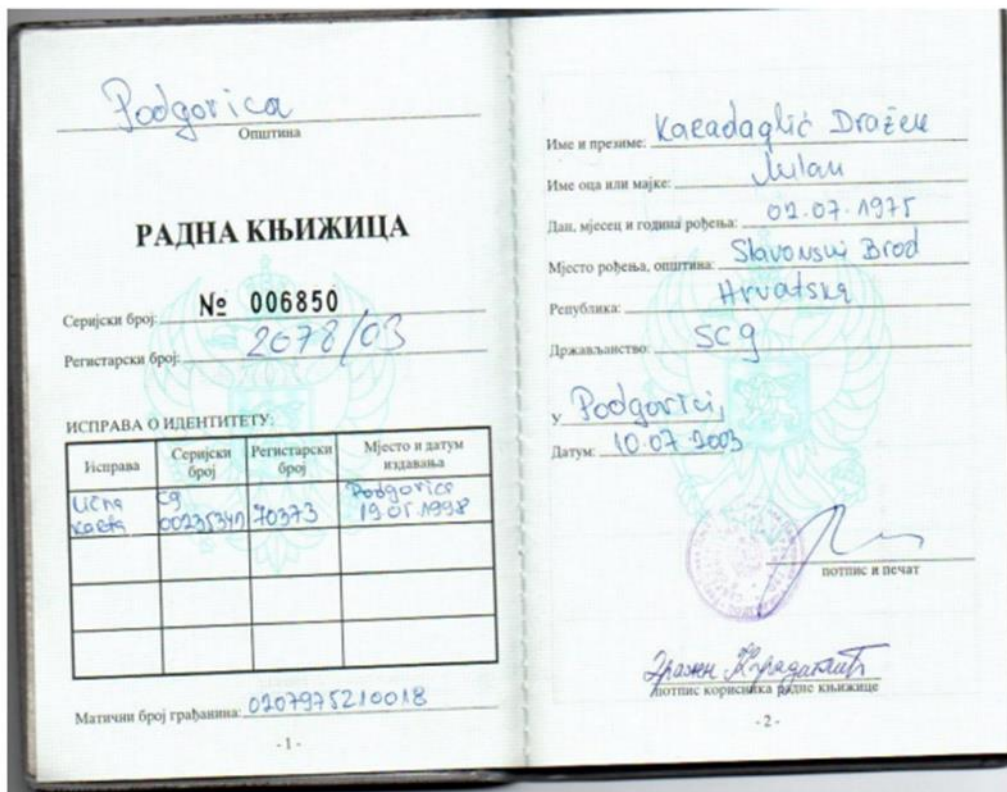 Podgorica
Општина
РАДНА КЊИЖИЦА
Серијски број: № 006850
Регистарски број: 2078/03
ИСПРАВА О ИДЕНТИТЕТУ:
Исправа Серијски број Регистарски број Мјесто и датум издавања
Lična karta CG 70373 Podgorica
Матични број грађанина: 0207975210018
- 1 -
Име и презиме: Karadaglić Dražen
Име оца или мајке: Milan
Дан, мјесец и година рођења: 02.07.1975
Мјесто рођења, општина: Slavonski Brod
Република: Hrvatska
Држављанство: SCG
У Podgorici,
Датум: 10.07.2003
потпис и печат
Дражен Карадаглић
потпис корисника радне књижице
- 2 -